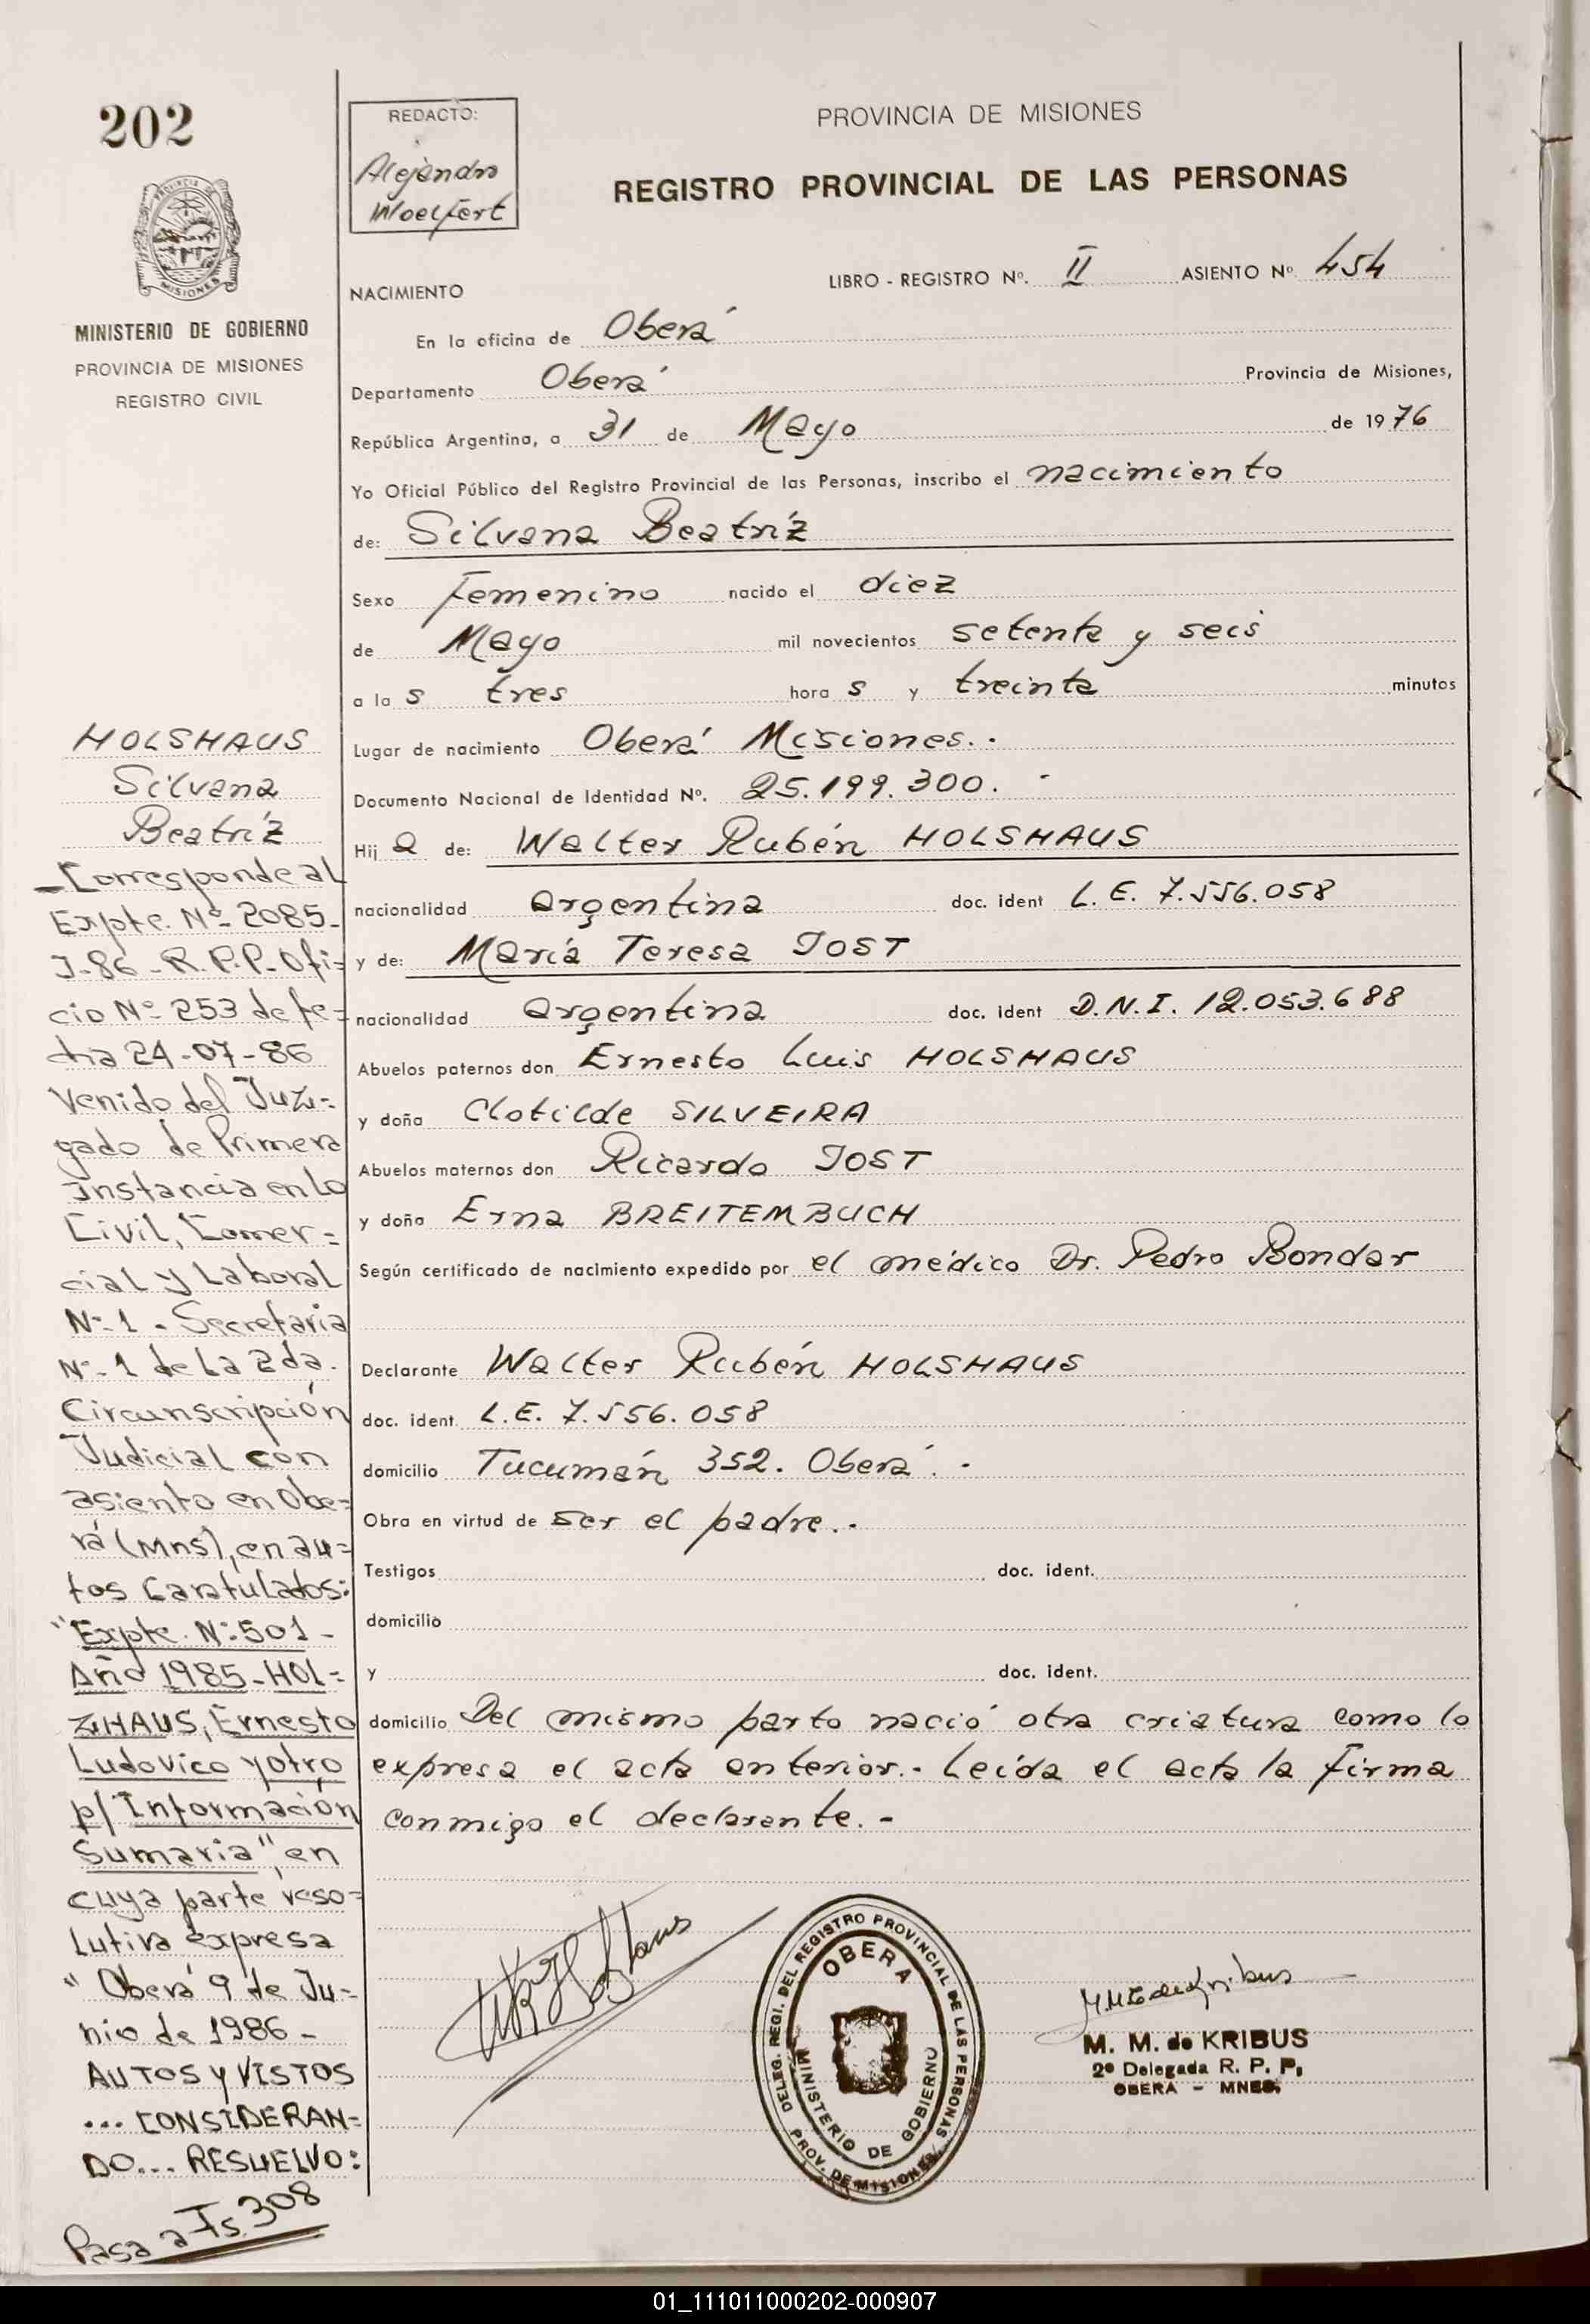 202
PROVINCIA DE MISIONES
MINISTERIO DE GOBIERNO
PROVINCIA DE MISIONES
REGISTRO CIVIL
HOLSHAUS
Silvana
Beatríz
Corresponde al
Expte. Nº 2085-
J-86-R.P.P. Ofi=
cio Nº 253 de fe=
cha 24-07-86
Venido del Juz=
gado de Primera
Instancia en Lo
Civil, Comer=
cial y Laboral
Nº 1 - Secretaria
Nº 1 de La 2da.
Circunscripción
Judicial con
asiento en Obe=
rá (Mns), en au=
tos Caratulados:
"Expte. Nº 501-
Año 1985-HOL=
ZHAUS, Ernesto
Ludovico y otro
p/ Información
Sumaria", en
cuya parte reso=
lutiva expresa
"Oberá 9 de Ju=
nio de 1986-
AUTOS y VISTOS
... CONSIDERAN=
DO... RESUELVO:
Pasa a Fs. 308
REDACTO:
Alejandro
Woelfert
PROVINCIA DE MISIONES
REGISTRO PROVINCIAL DE LAS PERSONAS
LIBRO - REGISTRO Nº. II ASIENTO Nº 454
NACIMIENTO
En la oficina de Oberá
Departamento Oberá Provincia de Misiones,
República Argentina, a 31 de Mayo de 1976
Yo Oficial Público del Registro Provincial de las Personas, inscribo el nacimiento
de: Silvana Beatríz
Sexo Femenino nacido el diez
de Mayo mil novecientos setenta y seis
a la s tres hora s y treinta minutos
Lugar de nacimiento Oberá Misiones.-
Documento Nacional de Identidad Nº. 25.199.300.-
Hij a de: Walter Rubén HOLSHAUS
nacionalidad argentina doc. ident L.E. 7.556.058
y de: María Teresa JOST
nacionalidad argentina doc. ident D.N.I. 12.053.688
Abuelos paternos don Ernesto Luis HOLSHAUS
y doña Clotilde SILVEIRA
Abuelos maternos don Ricardo JOST
y doña Erna BREITEMBUCH
Según certificado de nacimiento expedido por el médico Dr. Pedro Bondar
Declarante Walter Rubén HOLSHAUS
doc. ident. L.E. 7.556.058
domicilio Tucumán 352. Oberá.-
Obra en virtud de ser el padre.-
Testigos doc. ident.
domicilio
y doc. ident.
domicilio Del mismo parto nació otra criatura como lo
expresa el acta anterior.- Leída el acta la firma
conmigo el declarante.-
DELEG. REGI. DEL REGISTRO PROVINCIAL DE LAS PERSONAS
OBERA
MINISTERIO DE GOBIERNO
PROV. DE MISIONES
M. M. de KRIBUS
2ª Delegada R. P. P.
OBERA - MNES.
01_111011000202-000907